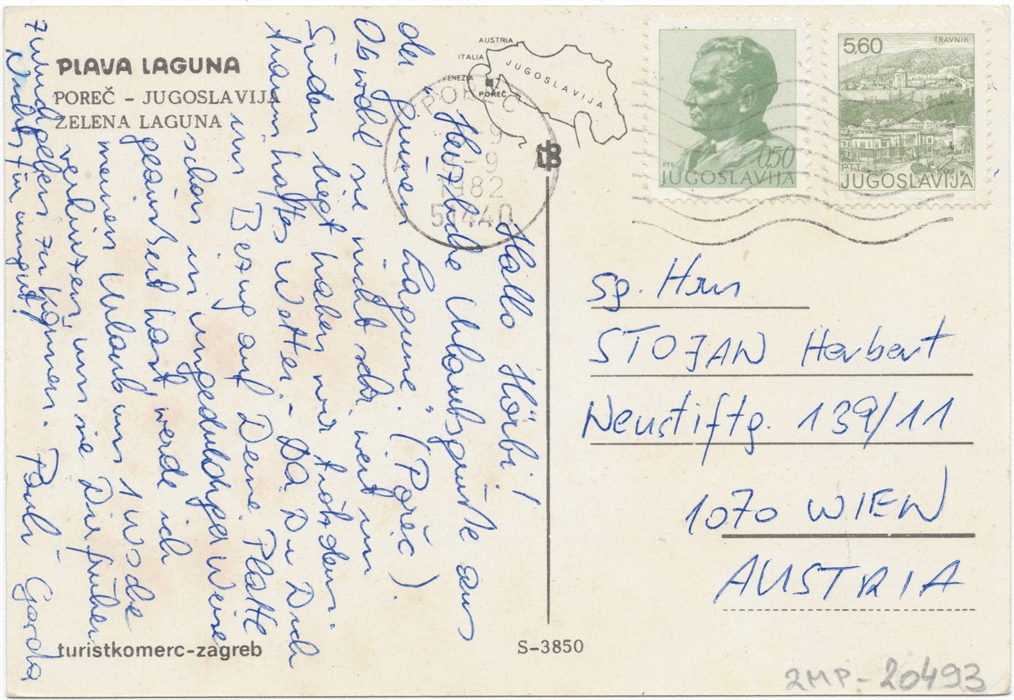 PLAVA LAGUNA
POREČ – JUGOSLAVIJA
ZELENA LAGUNA
AUSTRIA
ITALIA
VENEZIA
JUGOSLAVIJA
POREČ
POREČ
9
1982
51440
0,50
JUGOSLAVIJA
5,60
TRAVNIK
JUGOSLAVIJA
Hallo Hörbi!
Herzliche Urlaubsgrüße aus
der "grünen Lagune" (Poreč).
Obwohl sie nicht sehr weit im
Süden liegt haben wir trotzdem
traumhaftes Wetter. – Da Du Dich
in Bezug auf Deine Platte
schon in ungeduldiger Weise
geäußert hast, werde ich
meinen Urlaub um 1 Woche
verkürzen um sie Dir früher
zurückgeben zu können.
Nichts für ungut!
Pauli – Gerda
Sg. Hrn
STOJAN Herbert
Neustiftg. 139/11
1070 WIEN
AUSTRIA
turistkomerc-zagreb
S-3850
2MP-20493